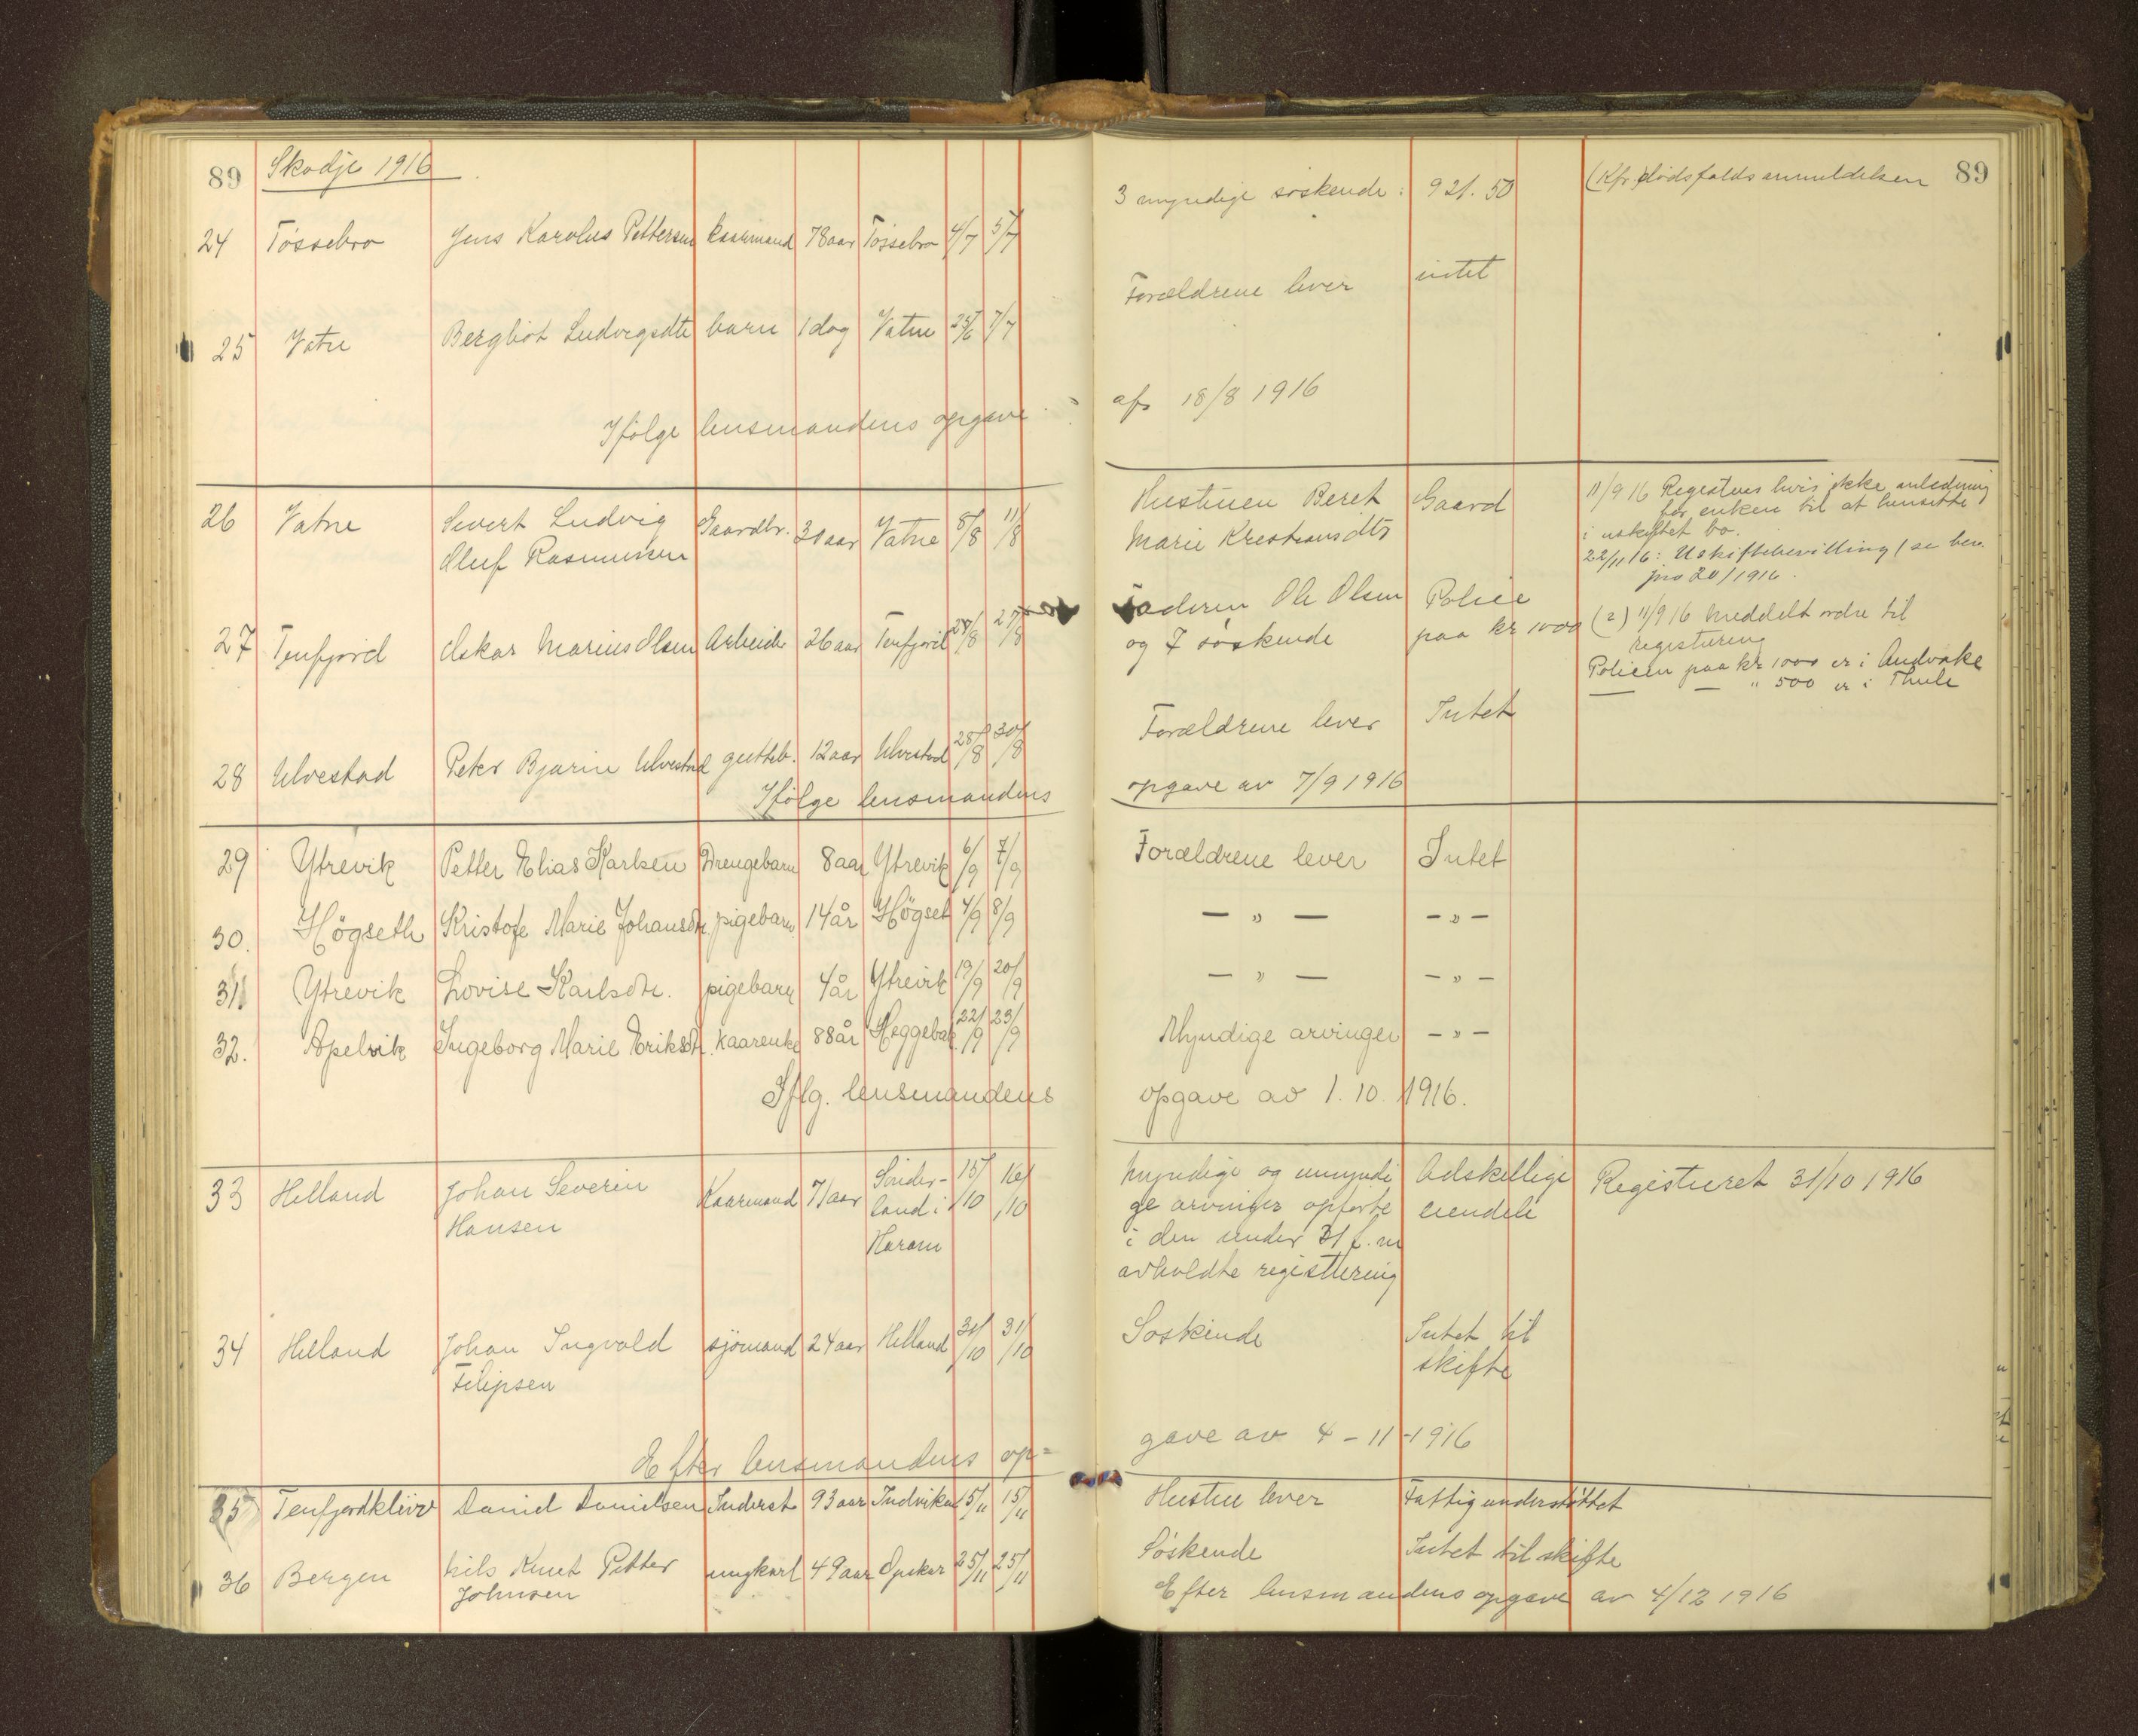 89 Skodje 1916
24 Tössebro Jens Karolus Pettersen kaarmand 78 aar Tössebro 4/7 5/7
25 Vatne Bergliot Ludvigsdtr barn 1 dag Vatne 25/6 7/7
Ifölge lensmandens opgave
26 Vatne Sivert Ludvig Gaardbr. 30 aar Vatne 8/8 11/8
Oluf Rasmussen
27 Tenfjord Oskar Marius Olsen Arbeider 26 aar Tenfjord 27/8
28 Ulvestad Peter Bjarne Ulvestad gutteb. 12 aar Ulvestad 28/8 30/8
Ifölge lensmandens
29 Ytrevik Petter Elias Karlsen Drengebarn 8 aar Ytrevik 6/9 7/9
30. Högseth Kristofe Marie Johansdtr. pigebarn 14 år Högset 4/9 8/9
31. Ytrevik Lovise Karlsdtr. pigebarn 4 år Ytrevik 19/9 20/9
32. Apelvik Ingeborg Marie Eriksdtr. kaarenke 88 år Heggebak 22/9 23/9
Iflg. lensmandens
33 Helland Johan Severin Kaarmand 71 aar Sönder- 15/10 16/10
Hansen land i
Haram
34 Helland Johan Ingvald sjömand 24 aar Helland 31/10 31/10
Filipsen
Efter lensmandens op=
35 Tenfjordkleiv Daniel Danielsen Inderst 93 aar Indviken 15/11 15/11
36 Bergen Nils Knut Petter ungkarl 49 aar Opskar 25/11 25/11
Johnsen
89
3 myndige söskende: 921.50 (Kfr. dödsfaldsanmeldelsen
Forældrene lever intet
af 18/8 1916
Hustruen Beret Gaard 11/9 16 Registrer hvis ikke anledning
for enken til at hensitte
Marie Kristiansdtr i uskiftet bo.
22/11 16: Uskiftebevilling (se bev.
20/1916.
Faderen Ole Olsen Police (2) 11/9 16 meddelt ordre til
og 7 söskende paa kr 1000 registrering
Policen paa kr 1000 er i Andvake
— — " 500 er i Thule
Forældrene lever Intet
opgave av 7/9 1916
Forældrene lever Intet
— " — — " —
— " — — " —
Myndige arvinger — " —
opgave av 1. 10. 1916.
Myndige og umyndi Adskellige Registreret 31/10 1916
ge arvinger opförte eiendele
i den under 31 f. m
avholdte registrering
Söskende Intet til
skifte
gave av 4-11-1916
Hustru lever Fattigunderstöttet
Söskende Intet til skifte
Efter lensmandens opgave av 4/12 1916